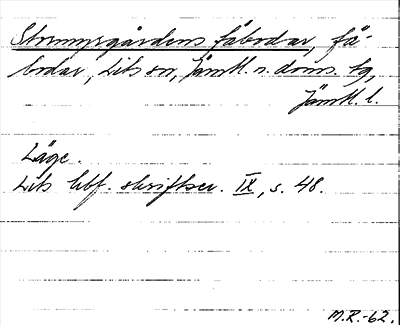 Stormyrgårdens fäbodar, fä-
bodar, Lits sn, Jämtl. n. doms. tg,
Jämtl. l.
Läge.
Lits hbf. skriftser. IX, s. 48.
M.R.-62.